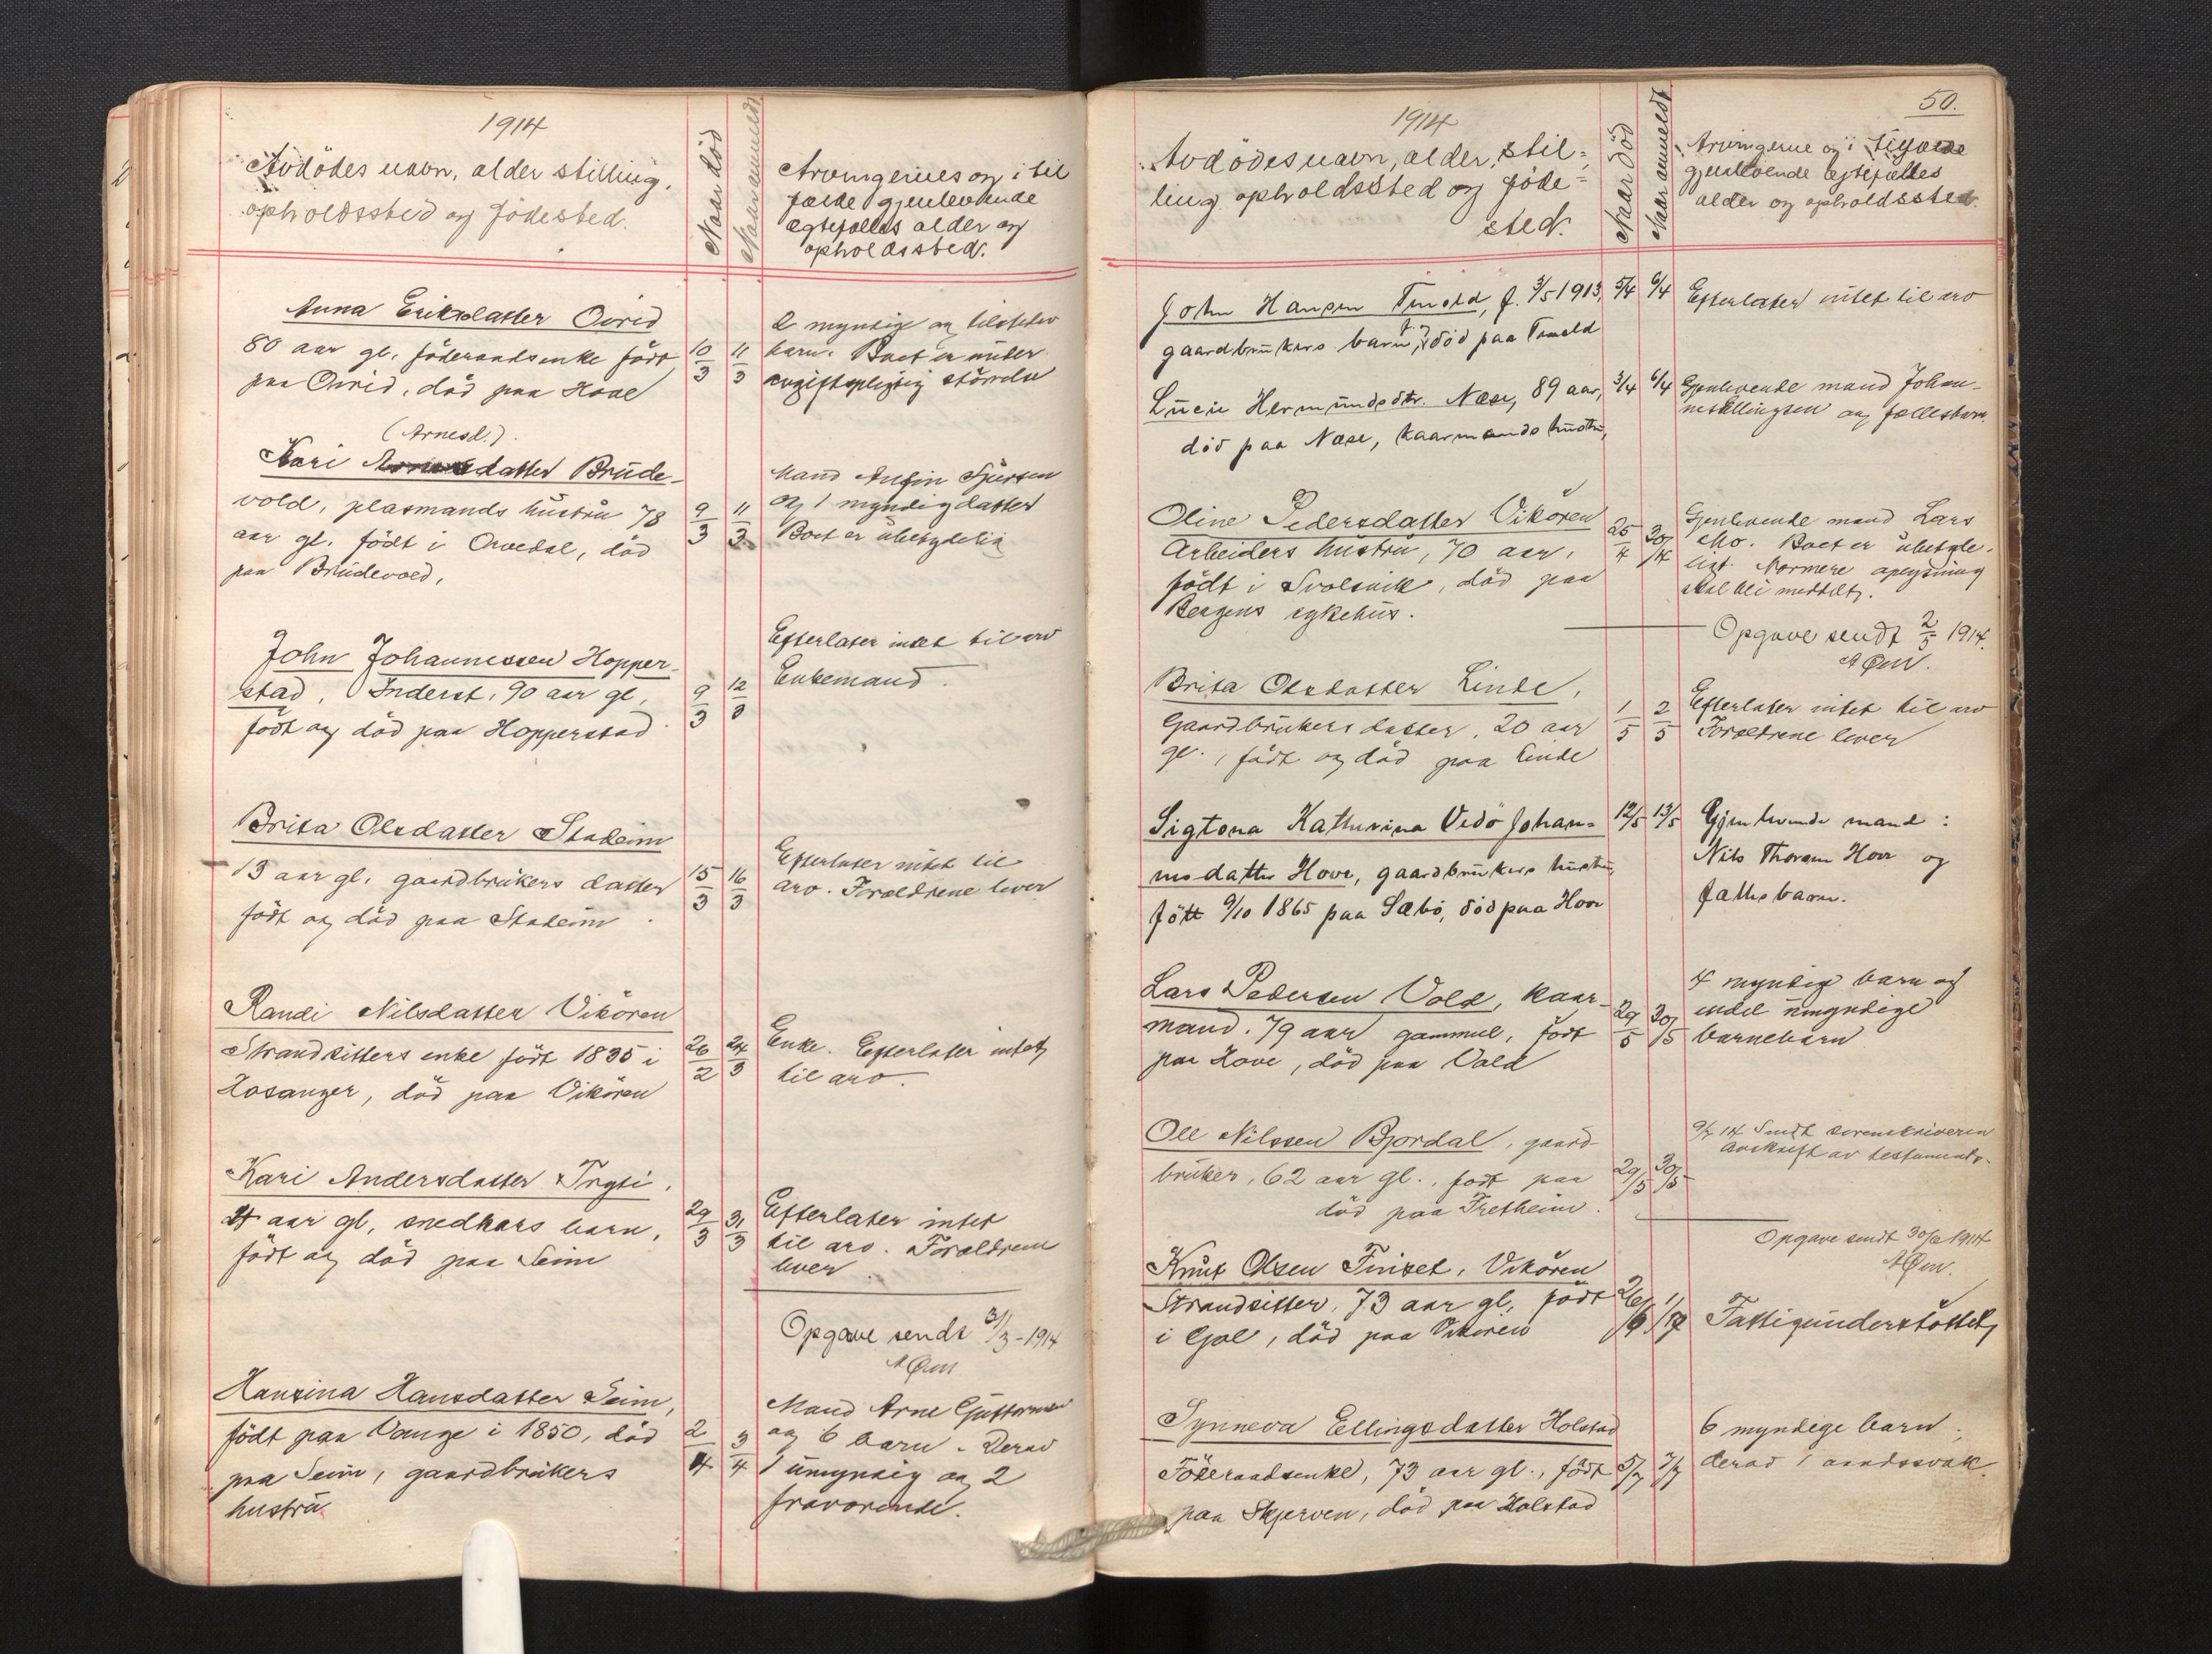 1914
Avdödes navn, alder stilling,
opholdssted og födested.
Naar död
Naar anmeldt
Arvingernes og i til
fælde gjenlevende
egtefælles alder og
opholdssted.
Anna Eriksdatter Ovrid
80 aar gl. föderaadsenke födt
paa Ovrid, död paa Hove
10/3
11/3
2 myndige og tilstede
barn. Boet er under
avgiftspligtig störrelse
(Arnesd.).
Kari datter Brude-
vold, plasmands hustru 78
aar gl. födt i Arnedal, död
paa Brudevold,
9/3
11/3
Mand Anfin Sjursen
og 1 myndig datter
Boet er ubetydelig
John Johannessen Hopper-
stad, Inderst, 90 aar gl,
födt og död paa Hopperstad
9/3
12/3
Efterlater intet til arv
Enkemand.
Brita Olsdatter Stadeim
13 aar gl. gaardbrukers datter
födt og död paa Stadeim.
15/3
16/3
Efterlater intet til
arv. Forældrene lever
Randi Nilsdatter Vikören
Strandsitters enke födt 1835 i
Hosanger, död paa Vikören
26/2
24/3
Enke. Efterlater intet
til arv.
Kari Andersdatter Tryti,
aar gl, snedkers barn,
födt og död paa Seim
29/3
31/3
Efterlater intet
til arv. Forældrene
lever.
Opgave sendt 31/3-1914
A Öen
Hansina Hansdatter Seim,
födt paa Vange i 1850, död
paa Seim, gaardbrukers
hustru
2/4
3/4
Mand Arne Guttormsen
og 6 barn. Derav
1 umyndig og 2
fraværende.
50.
1914
Avdödes navn, alder, stil-
ling opholdssted og föde-
sted.
Naar död
Naar anmeldt
Arvingerne og i tilfælde
gjenlevende egtefælles
alder og opholdssted.
John Hansen Tenold, f. 3/5 1913,
gaardbrukers barn, f. död paa Tenold
5/4
6/4
Efterlater intet til arv
Lucie Hermundsdtr. Nese, 89 aar,
död paa Nese, kaarmands hustru,
3/4
6/4
Gjenlevende mand Johan-
nes Ellingsen og fællesbarn.
Oline Pedersdatter Vikören
Arbeiders hustru, 70 aar,
födt i Svolsvik, död paa
Bergens sykehus.
25/4
30/4
Gjenlevende mand Lars
Mo. Boet er ubetyde-
ligt. Nærmere oplysning
skal bli meddelt.
Opgave sendt 2/5 1914.
A Öen.
Brita Olsdatter Linde,
Gaardbrukers datter, 20 aar
gl., födt og död paa Linde
1/5
2/5
Efterlater intet til arv
Forældrene lever
Sigtona Katharina Vedö Johan-
nesdatter Hove, gaardbrukers hustru,
fött 9/10 1865 paa Sæbö, död paa Hove
12/5
13/5
Gjenlevende mand:
Nils Thorsen Hove og
fælles barn.
Lars Pedersen Vold, kaar-
mand. 79 aar gammel, födt
paa Hove, död paa Vold
29/5
30/5
4 myndige barn og
endel umyndige
barnebarn
Ole Nilssen Bjordal, gaard-
bruker, 62 aar gl., födt paa
död paa Fretheim.
29/5
30/5
9/7 14 Sendt sorenskriveren
Avskrift av testamente.
Opgave sendt 30/6 1914
A Öen.
Knut Olsen Finset, Vikören
Strandsitter, 73 aar gl, födt
i Gol, död paa Vikören
26/6
1/7
Fattigunderstöttet
Synneva Ellingsdatter Holstad
Föderaadsenke, 73 aar gl., födt
paa Skjerven, död paa Holstad
5/7
7/7
6 myndige barn,
derav 1 aandssvak.